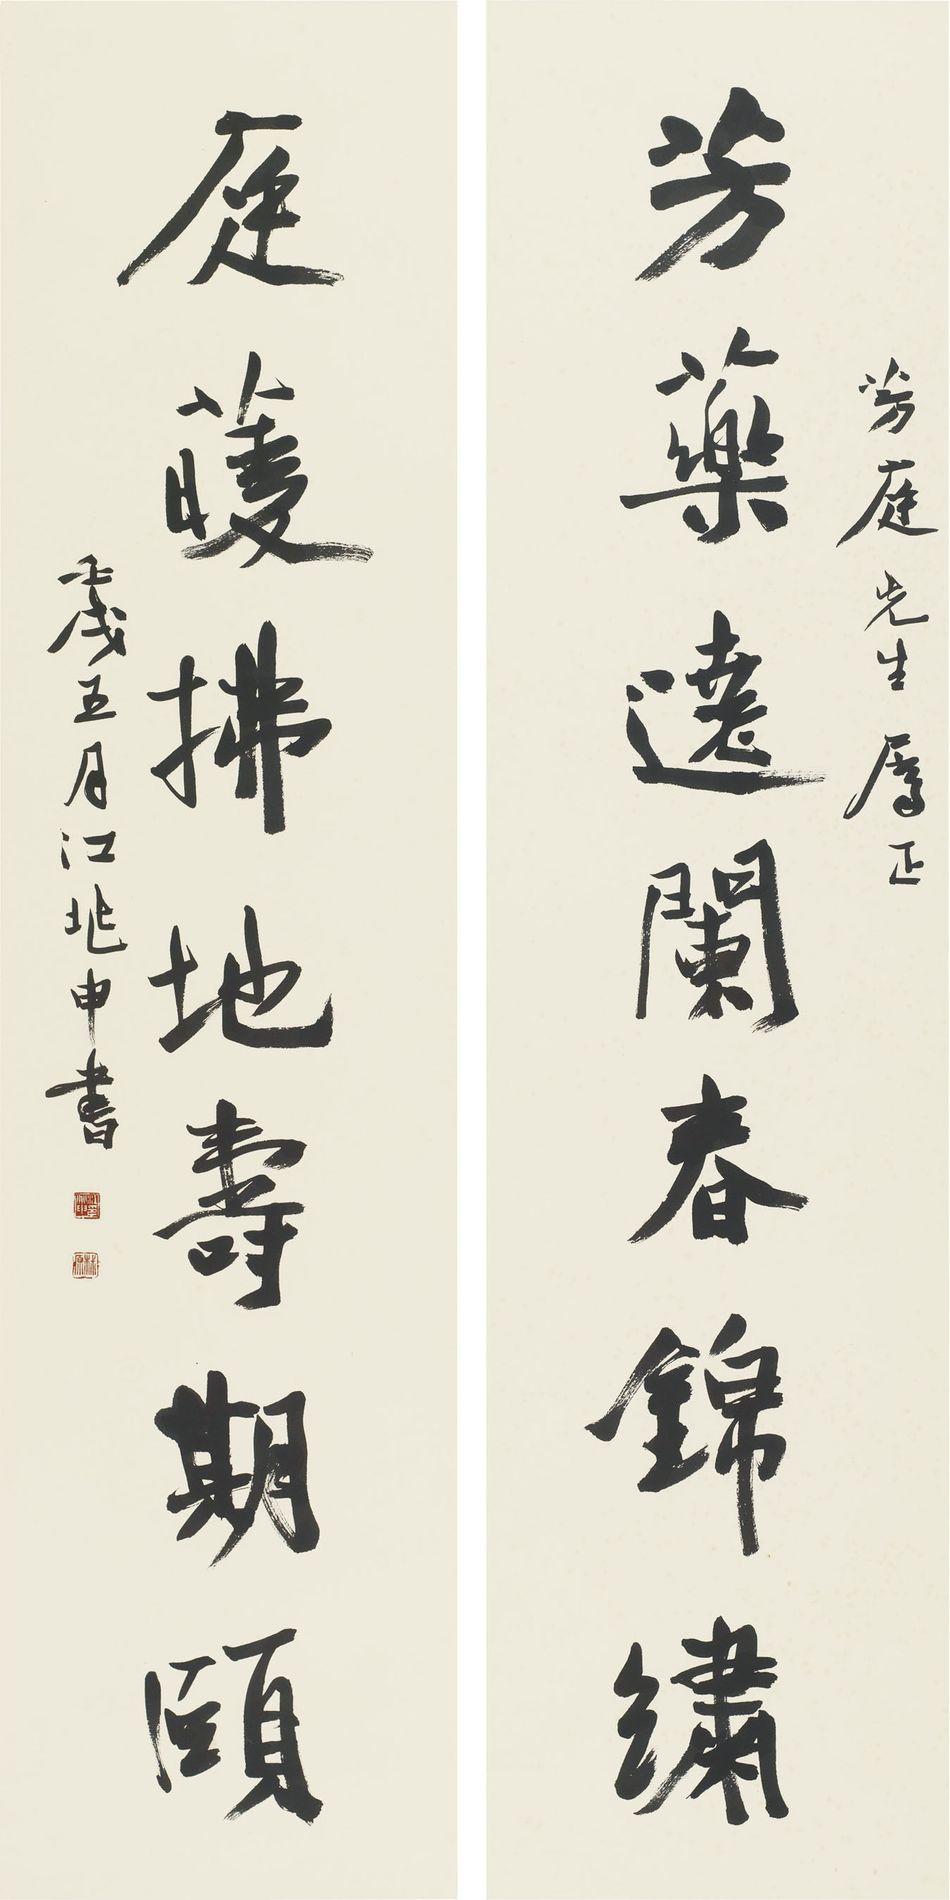 芳庭先生屬正
芳藥遶闌春錦繡
庭萲拂地壽期頤
壬戌五月江兆申書